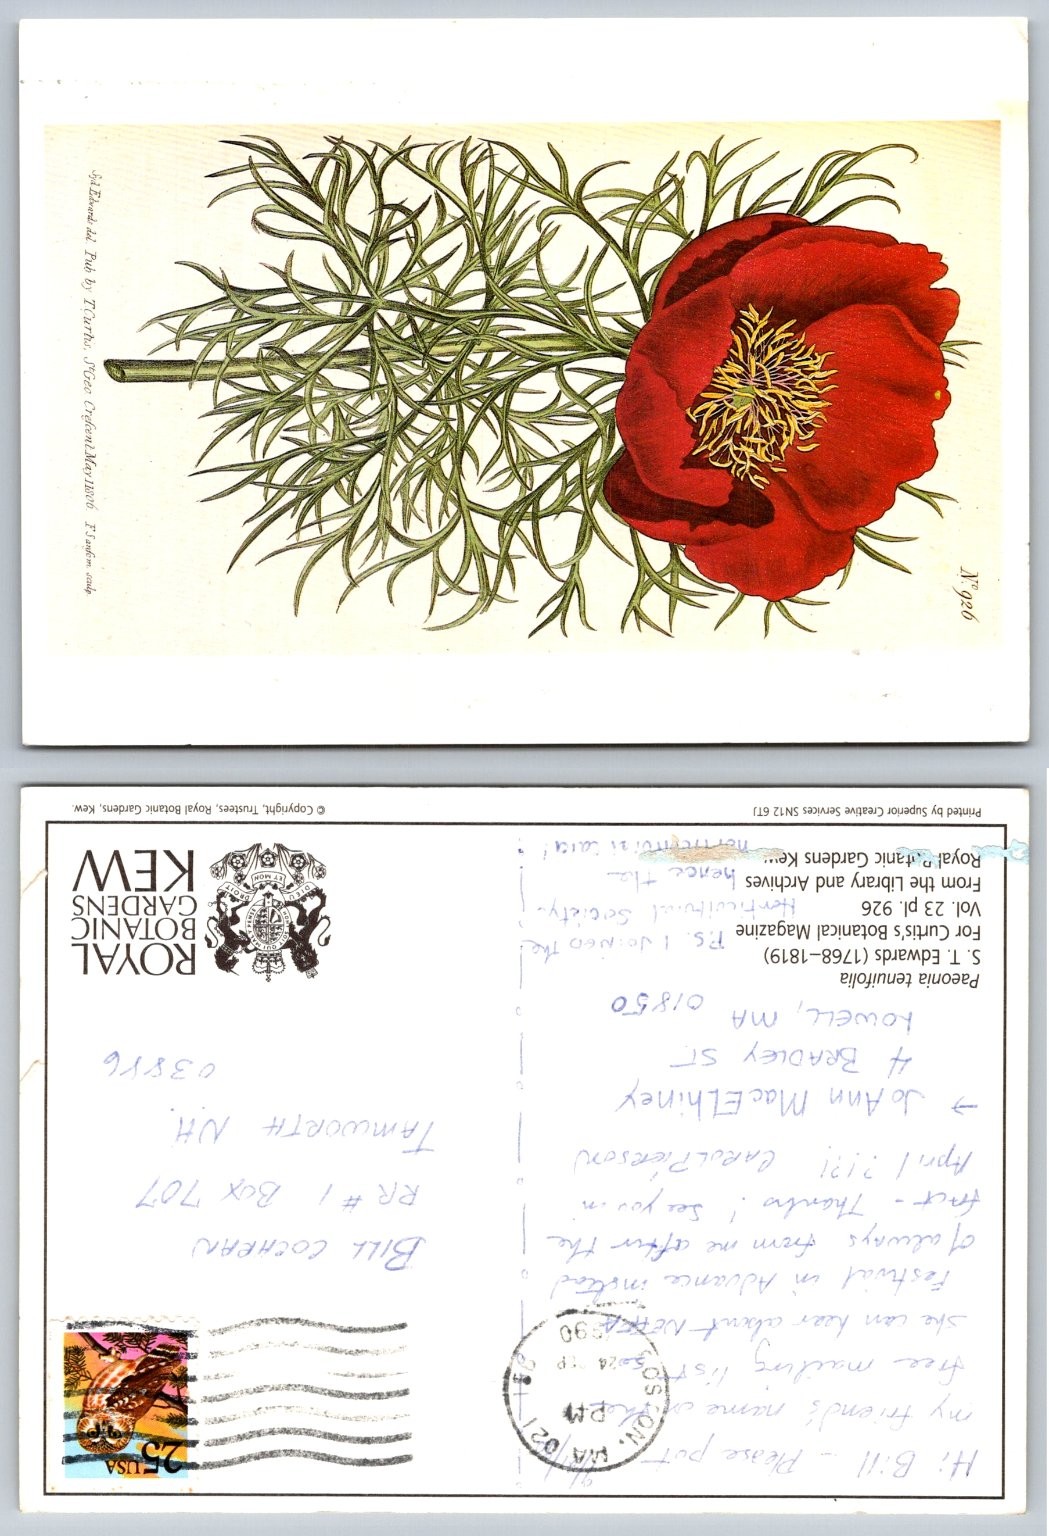 Syd. Edwards del. Pub. by T. Curtis, St. Geo. Crescent May 1 1806. F. Sansom sculp.
No. 926
Paeonia tenuifolia
S. T. Edwards (1768–1819)
For Curtis's Botanical Magazine
Vol. 23 pl. 926
From the Library and Archives
Royal Botanic Gardens Kew.
Printed by Superior Creative Services SN12 6TJ
© Copyright, Trustees, Royal Botanic Gardens, Kew.
ROYAL
BOTANIC
GARDENS
KEW
DIEU ET MON DROIT
USA
25
BOSTON, MA 021
PM
24 SEP
1990
Hi Bill Please put
my friend's name on the
free mailing list so
she can hear about NEHFA
Festival in Advance instead
of always from me after the
fact - Thanks! See you in
April ?!?! CAROL PIERSON
→ JoAnn MacElhiney
4 BRADLEY ST
LOWELL, MA 01850
P.s. I Joined the
Horticultural Society
hence the
horticultural card!
BILL COCHRAN
RR #1 BOX 707
TAMWORTH N.H.
03886